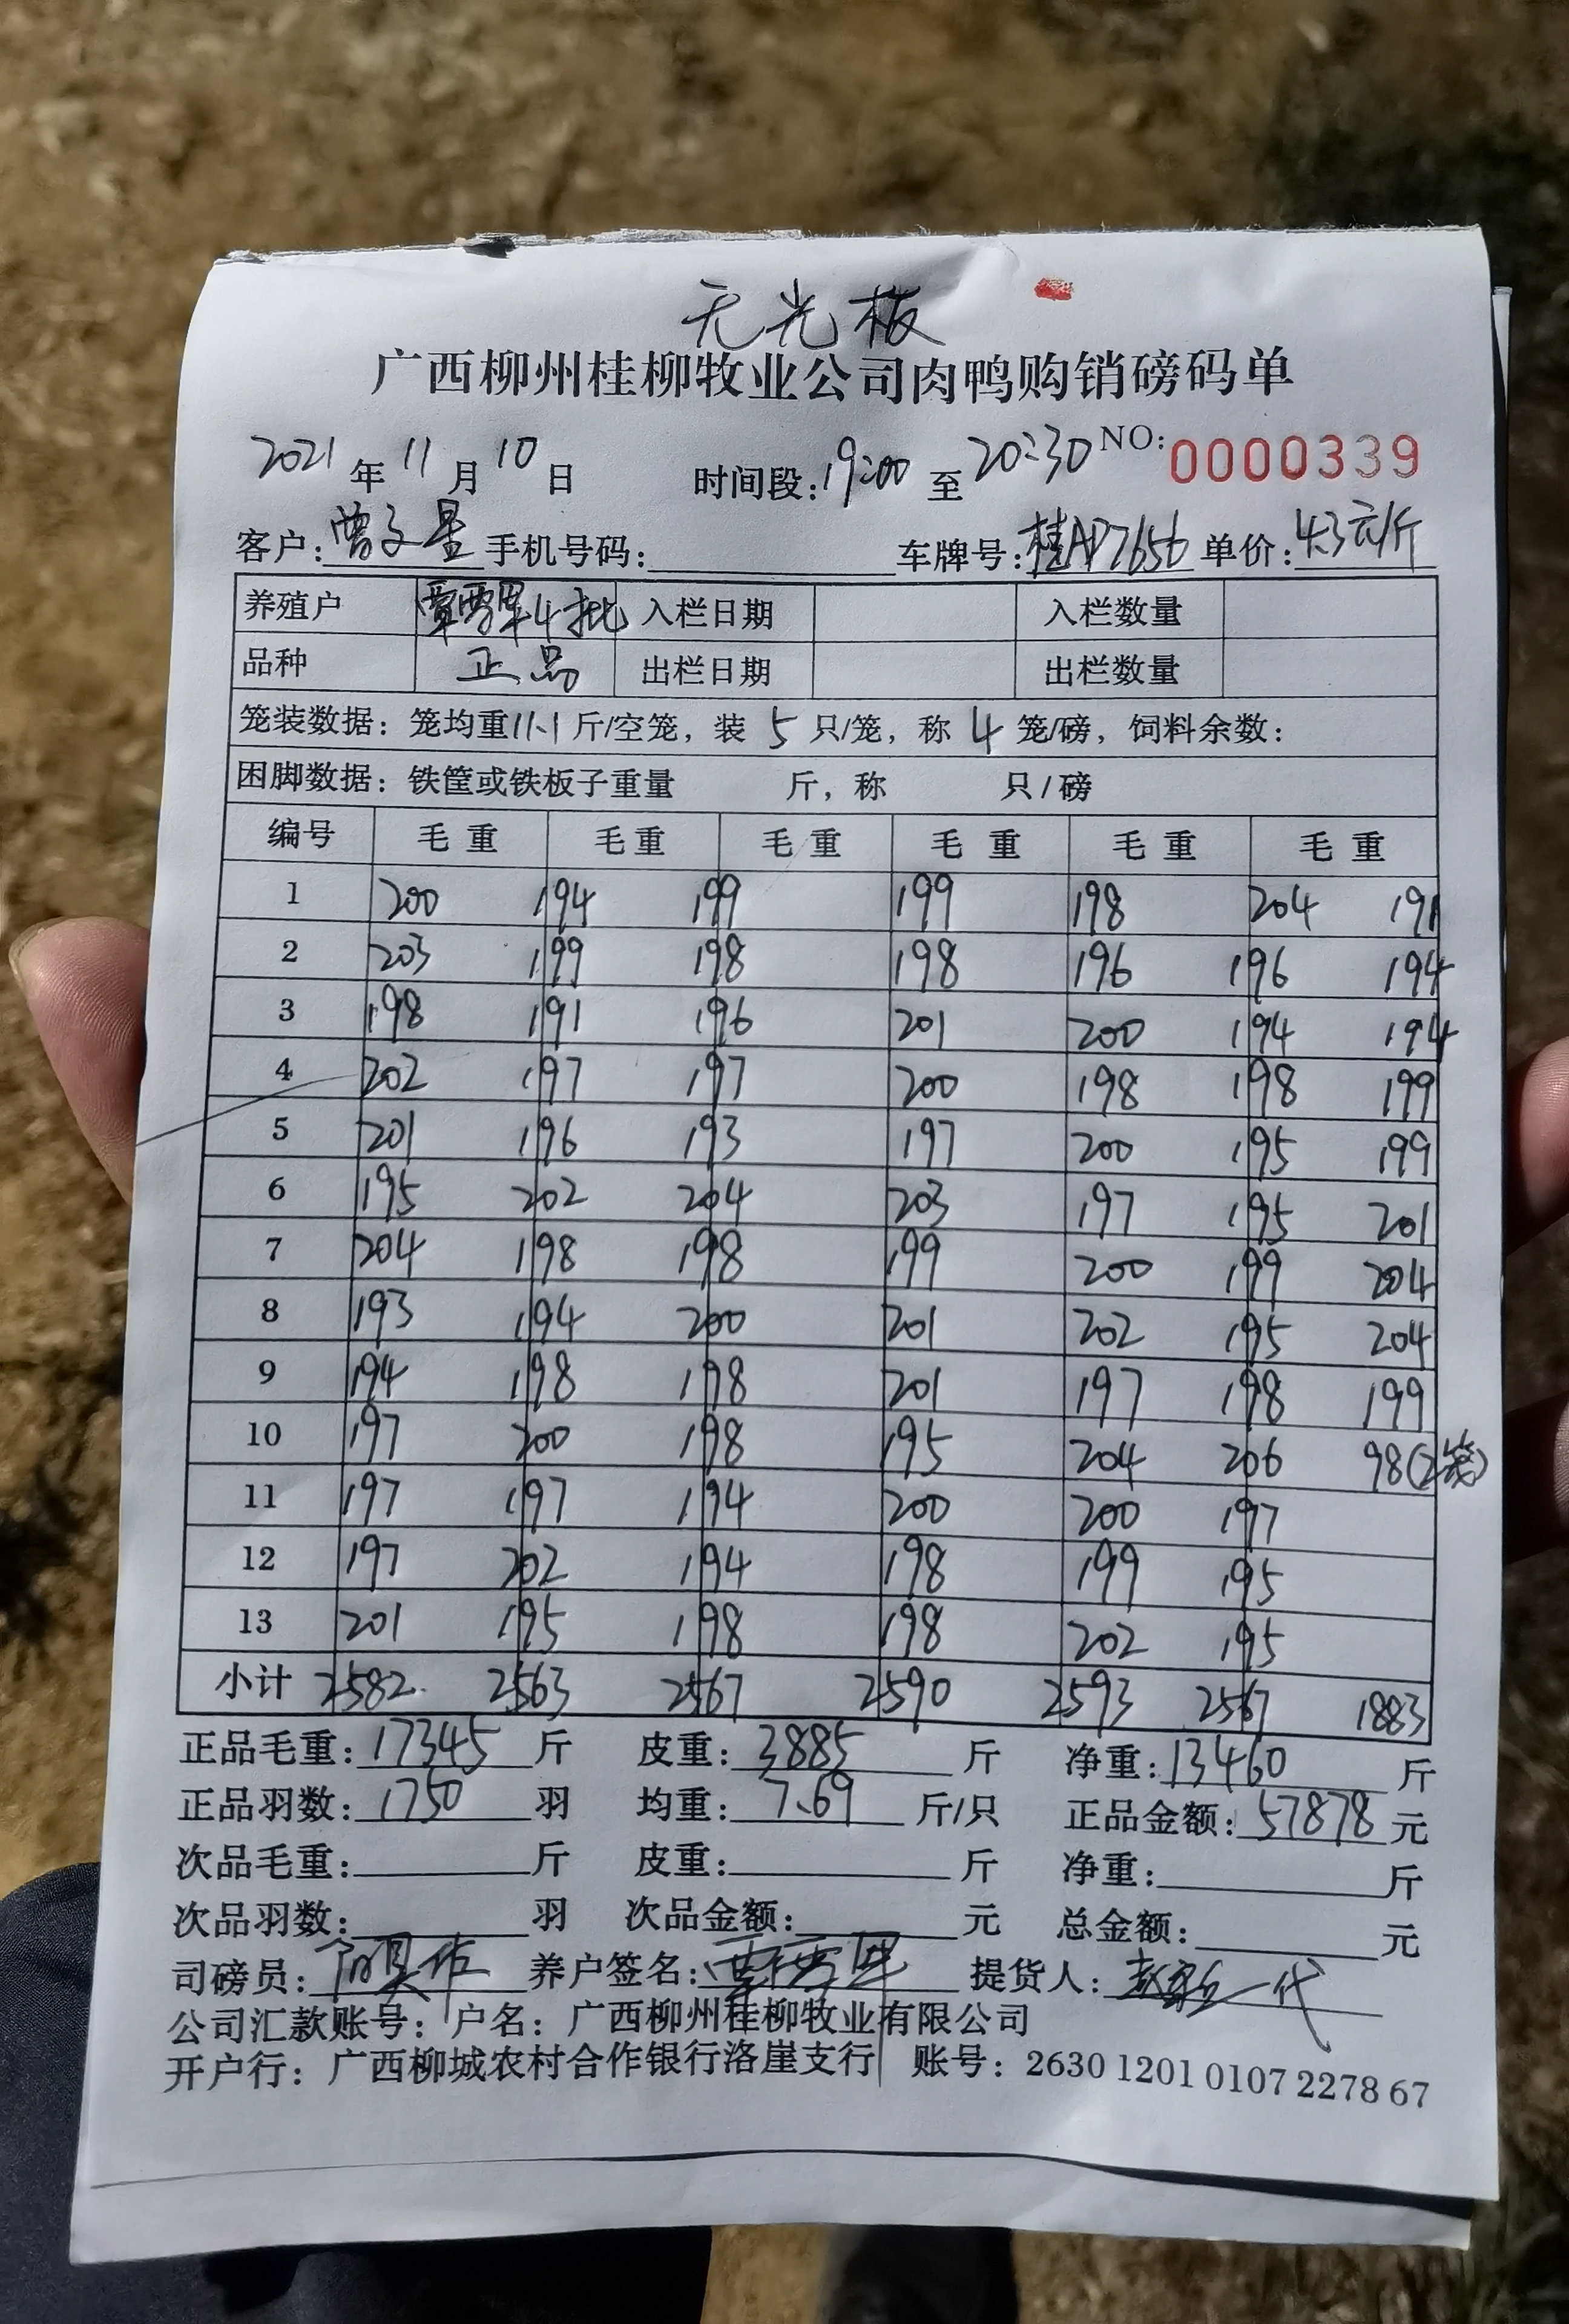 无光板
广西柳州桂柳牧业公司肉鸭购销磅码单
2021年11月10日 时间段:19:00至20:30 NO:0000339
客户:曾文星 手机号码: 车牌号:桂AP7656 单价:4.3元/斤
养殖户 覃雪军4批 入栏日期 入栏数量
品种 正品 出栏日期 出栏数量
笼装数据:笼均重11.1斤/空笼,装5只/笼,称4笼/磅,饲料余数:
困脚数据:铁筐或铁板子重量 斤,称 只/磅
编号 毛重 毛重 毛重 毛重 毛重 毛重
1 200 194 199 199 198 204 191
2 203 199 198 198 196 196 194
3 198 191 196 201 200 194 194
4 202 197 197 200 198 198 199
5 201 196 193 197 200 195 199
6 195 202 204 203 197 195 201
7 204 198 198 199 200 199 204
8 193 194 200 201 202 195 204
9 194 198 198 201 197 198 199
10 197 200 198 195 204 206 98(2笼)
11 197 197 194 200 200 197
12 197 202 194 198 199 195
13 201 195 198 198 202 195
小计 2582 2563 2567 2590 2593 2567 1883
正品毛重:17345斤 皮重:3885斤 净重:13460斤
正品羽数:1750羽 均重:7.69斤/只 正品金额:57878元
次品毛重: 斤 皮重: 斤 净重: 斤
次品羽数: 羽 次品金额: 元 总金额: 元
司磅员: 养户签名: 提货人: 代
公司汇款账号:户名:广西柳州桂柳牧业有限公司
开户行:广西柳城农村合作银行洛崖支行 账号:2630 1201 0107 2278 67